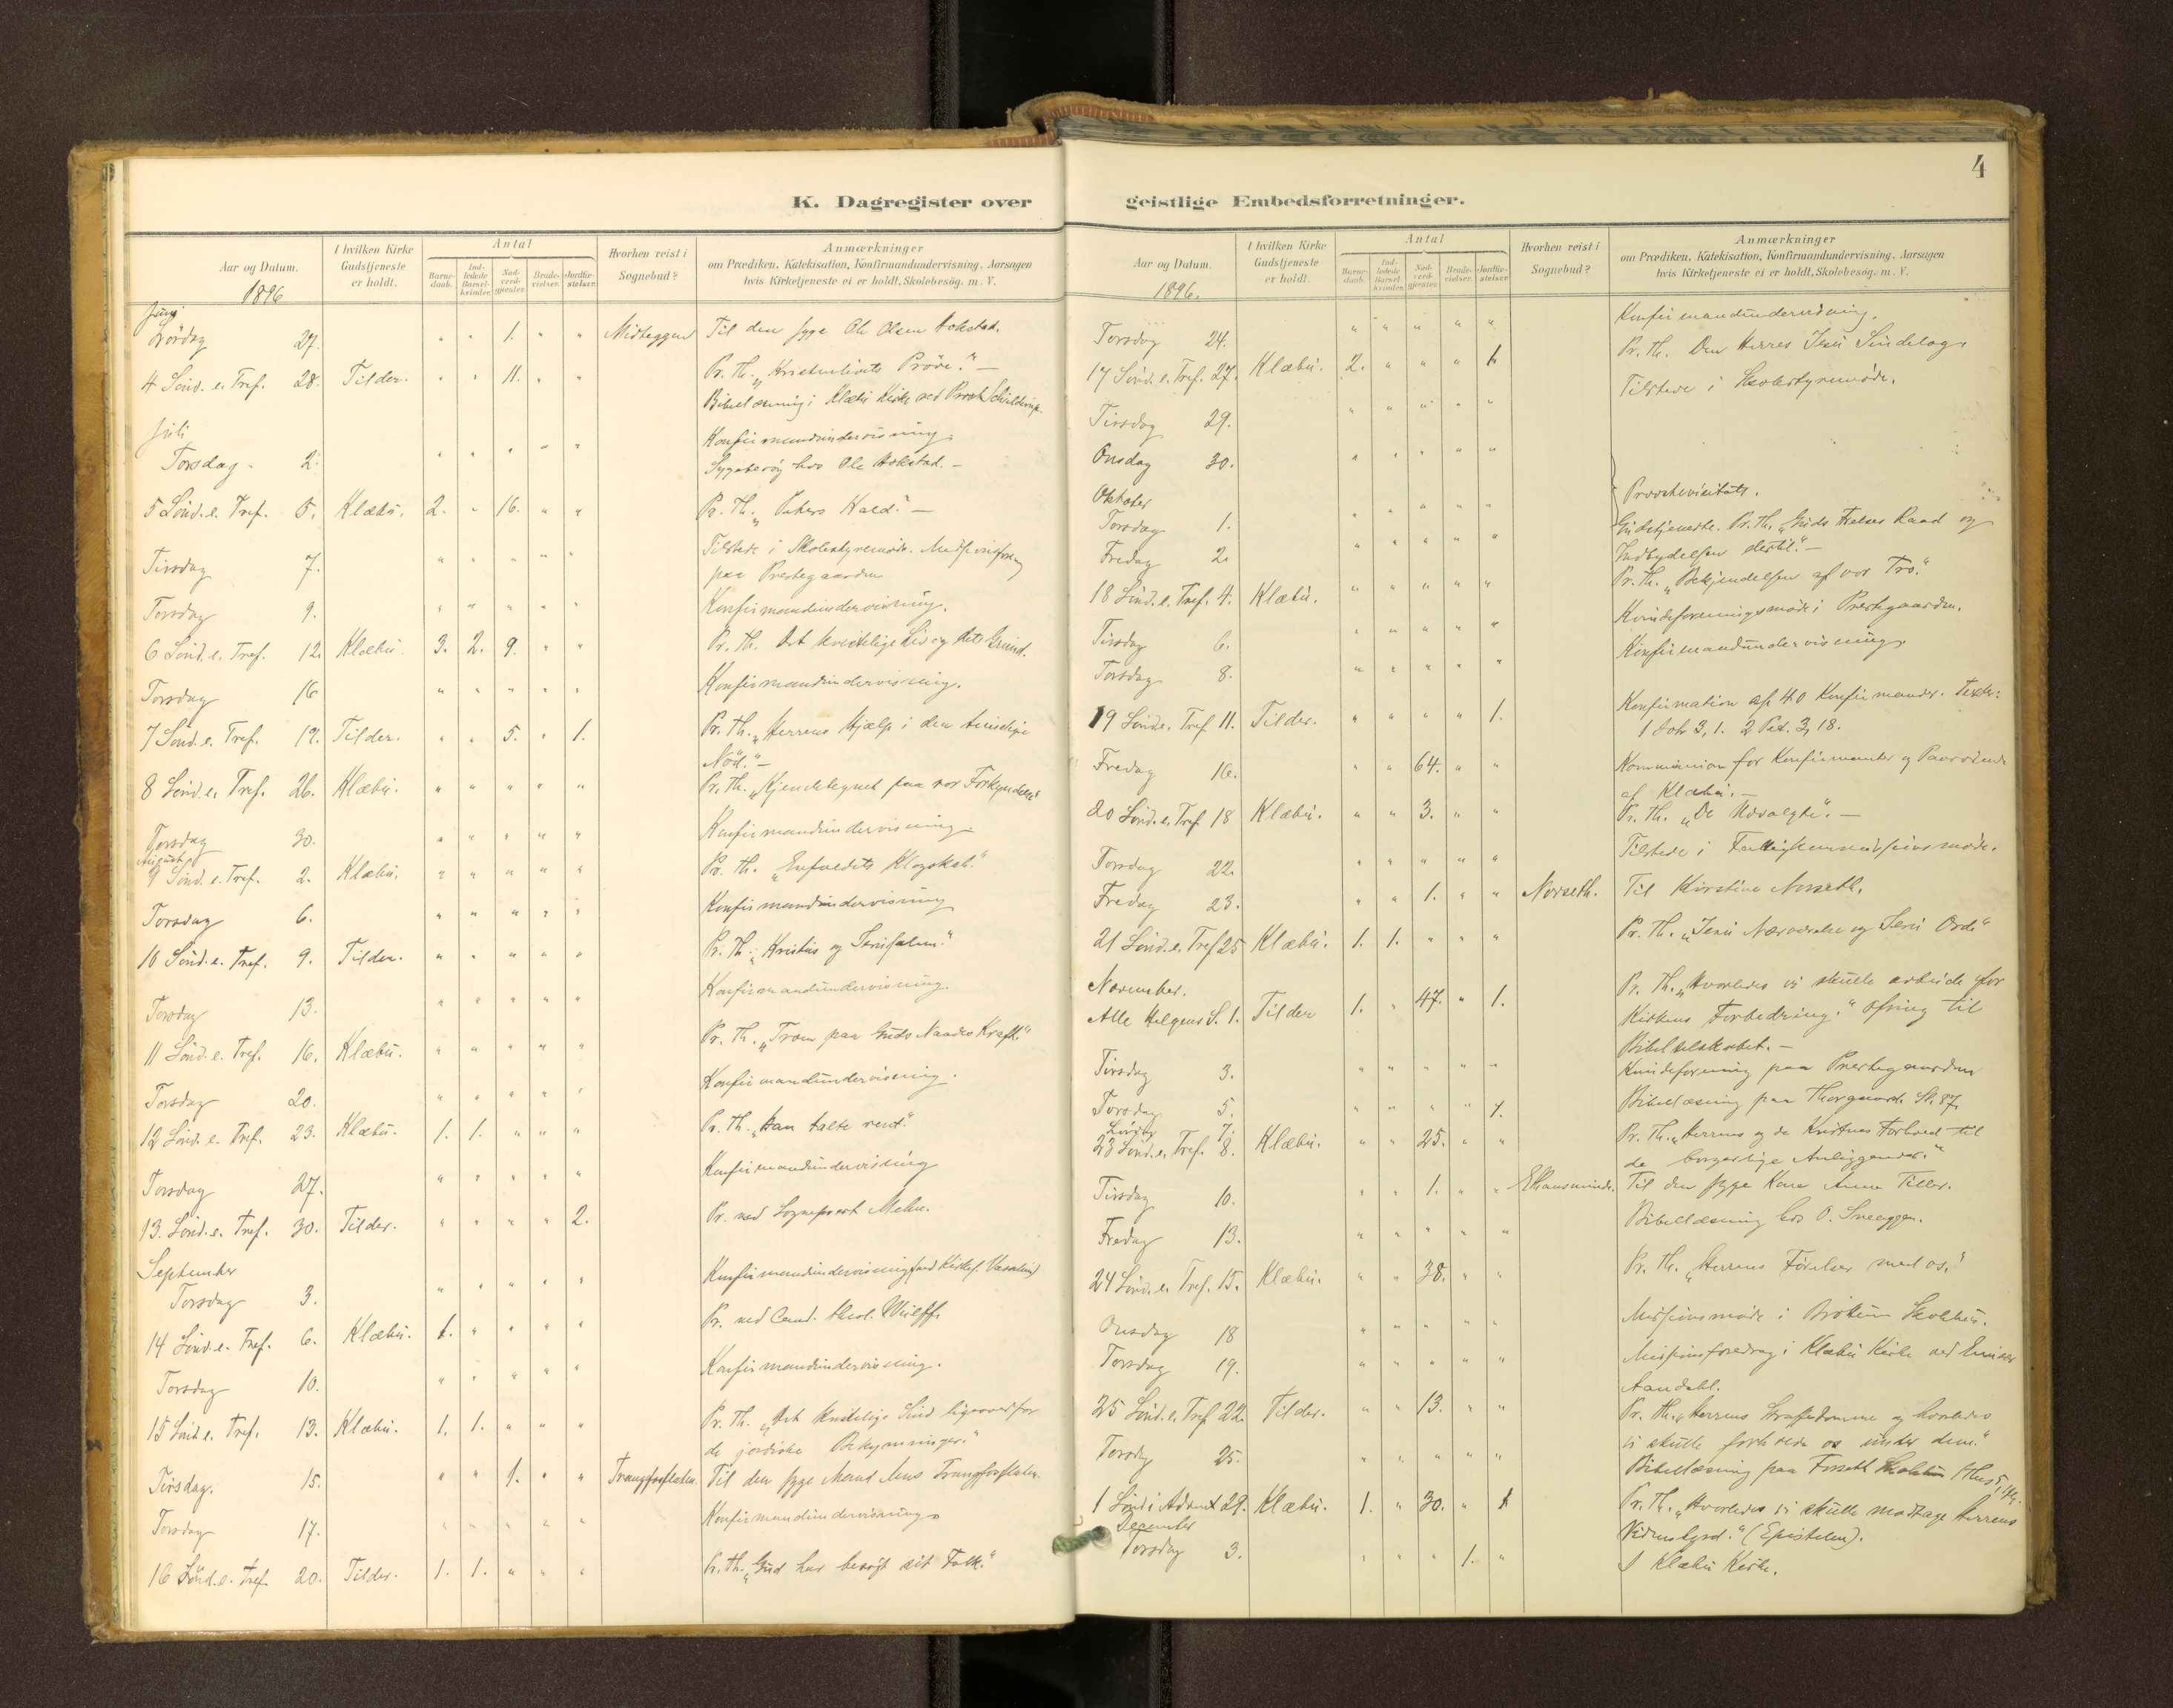 4
K. Dagregister over
Aar og Datum.
I hvilken Kirke Gudstjeneste er holdt.
Antal
Barnedaab.
Indledede Barselkvinder.
Nadverdgjester.
Brudevielser.
Jordfæstelser.
Hvorhen reist i Sognebud?
Anmærkninger
om Prædiken, Katekisation, Konfirmandundervisning. Aarsagen
hvis Kirketjeneste ei er holdt, Skolebesøg. m. V.
1896
Juni
Lördag 27. " " 1. " " Midteggen Til den syge Ole Olsen Hokstad.
4 Sönd. e. Tref. 28. Tilder. " " 11. " " Pr. Th. "Kristenlivets Pröve." —
Bibellæsning i Klæbu Kirke ved Provst
Juli
Konfirmandundervisning.
Torsdag 2. " " " " " Sygebesög hos Ole Hokstad. —
5 Sönd. e. Tref. 5. Klæbu. 2. " 16. " " Pr. Th. "Peters Kald." —
Tirsdag 7. " " " " " Tilstede i Skolestyremöde.
paa Prestegaarden
Torsdag 9. " " " " " Konfirmandundervisning.
6 Sönd. e. Tref. 12. Klæbu. 3. 2. 9. " " Pr. Th. Det kristelige Liv og dets Grund.
Torsdag 16 " " " " " Konfirmandundervisning.
7 Sönd. e. Tref. 19. Tilder. " " 5. " 1. Pr. Th. "Herrens Hjælp i den timelige
Nöd." —
8 Sönd. e. Tref. 26. Klæbu. " " " " " Pr. Th. "Kjendetegnet paa vor Forkyndelse"
Torsdag 30. " " " " " Konfirmandundervisning
August
9 Sönd. e. Tref. 2. Klæbu. " " " " " Pr. Th. "Enfoldets Klogskab."
Torsdag 6. " " " " " Konfirmandundervisning
10 Sönd. e. Tref. 9. Tilder. " " " " " Pr. Th. "Kristus og Jerusalem."
Torsdag 13. " " " " " Konfirmandundervisning.
11 Sönd. e. Tref. 16. Klæbu. " " " " " Pr. Th. "Troen paa Guds Naades Kraft."
Torsdag 20. " " " " " Konfirmandundervisning.
12 Sönd. e. Tref. 23. Klæbu. 1. 1. " " " Pr. Th. "Han talte rent."
Torsdag 27. " " " " " Konfirmandundervisning
13. Sönd. e. Tref. 30. Tilder. " " " " 2. Pr. ved Sogneprest
September
Torsdag 3. " " " " " Konfirmandundervisning ved Kirkes.
14 Sönd. e. Tref. 6. Klæbu. 1. " " " " Pr. ved Cand. theol. Wulff
Torsdag 10. " " " " " Konfirmandundervisning.
15 Sönd. e. Tref. 13. Klæbu. 1. 1. " " " Pr. Th. "Det kristelige Sind ligeoverfor
de jordiske Bekymringer."
Tirsdag. 15. " " 1. " " Trangfosflaten. Til den syge Mand Jens Trangfosflaten.
Torsdag 17. " " " " " Konfirmandundervisning
16 Sönd. e. Tref. 20. Tilder. 1. 1. " " " Pr. Th. "Gud har besögt sit Folk."
geistlige Embedsforretninger.
Aar og Datum.
I hvilken Kirke Gudstjeneste er holdt.
Antal
Barnedaab.
Indledede Barselkvinder.
Nadverdgjester.
Brudevielser.
Jordfæstelser.
Hvorhen reist i Sognebud?
Anmærkninger
om Prædiken, Katekisation, Konfirmandundervisning. Aarsagen
hvis Kirketjeneste ei er holdt, Skolebesøg. m. V.
1896.
Torsdag 24. " " " " " Konfirmandundervisning.
17 Sönd. e. Tref. 27. Klæbu. 2. " " " 1. Pr. Th. Den Herres Jesu Sindelag.
Tirsdag 29. " " " " " Tilstede i Skolestyremöde.
Onsdag 30. " " " " "
Oktober
Provstevisitats.
Torsdag 1. " " " " " Gudstjeneste. Pr. Th. "Guds Frelses Raad og
Fredag 2. " " " " " Indbydelsen dertil." —
18 Sönd. e. Tref. 4. Klæbu. " " " " " Pr. Th. "Bekjendelsen af vor Tro."
Tirsdag 6. " " " " " Kvindeforeningsmöde i Prestegaarden.
Torsdag 8. " " " " " Konfirmandundervisning.
19 Sönd. e. Tref 11. Tilder. " " " " 1. Konfirmation af 40 Konfirmander. Text:
1 Joh 3, 1. 2 Pet. 3, 18.
Fredag 16. " " 64. " " Kommunion for Konfirmanter og Paarörende
af Klæbu. —
20 Sönd. e. Tref 18 Klæbu. " " 3. " " Pr. Th. "De Udvalgte". —
Torsdag 22. " " " " " Tilstede i
Fredag 23. " " 1. " " Norseth. Til Kirstine Norseth.
21 Sönd. e. Tref 25 Klæbu. 1. 1. " " " Pr. Th. "Jesu Nærværelse og Jesu Ord."
November.
Alle Helgens S. 1. Tilder 1. " 47. " 1. Pr. Th. "Hvorledes vi skulle arbeide for
Kirkens Forbedring." Ofring til
Bibelselskabet. —
Tirsdag 3. " " " " " Kvindeforening paa Prestegaarden
Torsdag 5. " " " " 1. Bibellæsning paa Thorgaard. Sl. 87.
Lördag 7.
23 Sönd. e. Tref. 8. Klæbu. " " 25. " " Pr. Th. "Herrens og de Kristnes Forhold til
de borgerlige Anliggender."
Tirsdag 10. " " 1. " " Til den syge Kone Anne Tiller.
Fredag 13. " " " " " Bibellæsning hos O. Sneeggen.
24 Sönd. e. Tref. 15. Klæbu. " " 38. " " Pr. Th. "Herrens Förelser med os."
Onsdag 18 " " " " " Missionsmöde i Bröttem Skolehus.
Torsdag 19. " " " " " Missionsforedrag i Klæbu Kirke ved Emissær
Aandahl.
25 Sönd. e. Tref 22. Tilder. " " 13. " " Pr. Th. "Herrens Straffedomme og hvorledes
vi skulle forholde os under dem."
Torsdag 25. " " " " " Bibellæsning paa Forseth
1 Sönd i Advent 29. Klæbu. 1. " 30. " 1. Pr. Th. "Hvorledes vi skulle modtage Herrens
Vidnesbyrd." (Epistelen).
December
Torsdag 3. " " " 1. " I Klæbu Kirke.